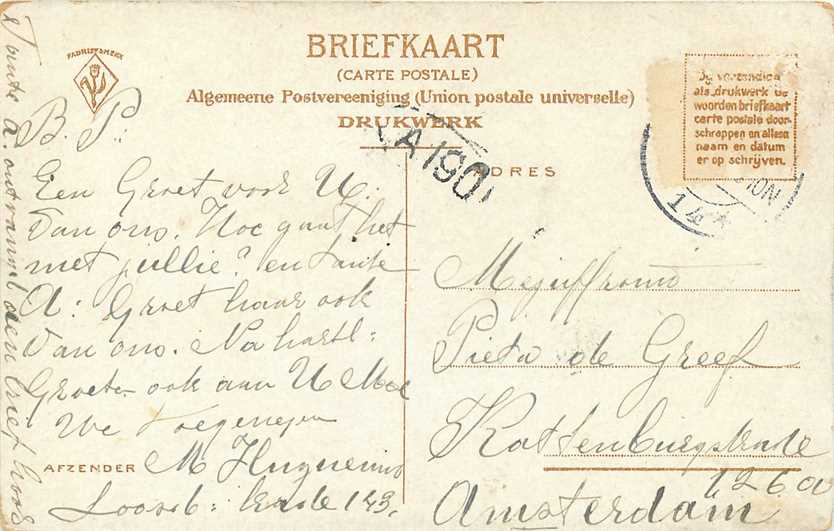 FABRIEKSMERK
BRIEFKAART
(CARTE POSTALE)
Algemeene Postvereeniging (Union postale universelle)
DRUKWERK
Bij verzending
als drukwerk de
woorden briefkaart
carte postale door-
schrappen en alleen
naam en datum
er op schrijven.
A190
ADRES
ION
14
B. P:
Een Groet voor U:
van ons. Hoe gaat het
met jullie? en tante
A: Groet haar ook
van ons. Na hartl:
Groete ook aan U Moe
Uw Toegenegen
AFZENDER M Huguenin
kade 143.
Tante A. ontvangt den brief
Mejuffrouw
Pieta de Greef
Kattenburgerkade
126a
Amsterdam